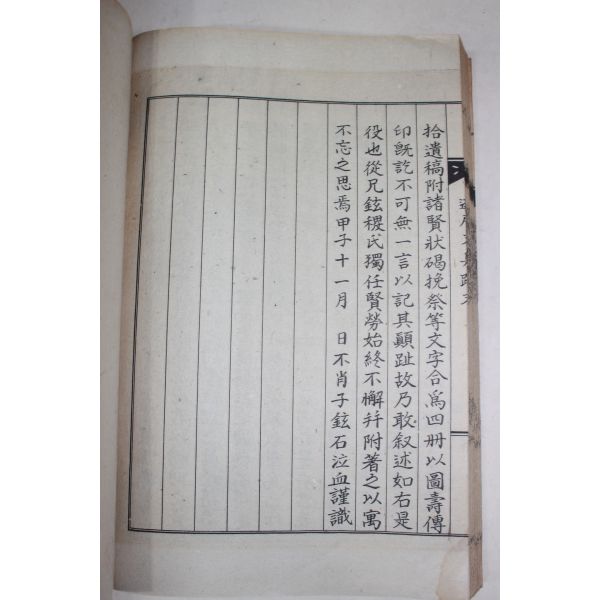 拾遺稿附諸賢狀碣挽祭等文字合爲四冊以圖壽傳
印旣訖不可無一言以記其顚趾故乃敢叙述如右是
役也從兄鉉稷氏獨任賢勞始終不懈幷附著之以寓
不忘之思焉甲子十一月　日不肖子鉉石泣血謹識